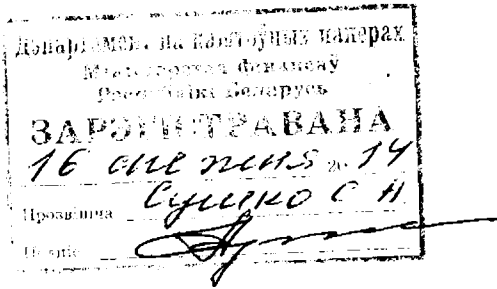 Дэпартамент па каштоўных паперах
Міністэрства фінансаў
Рэспублікі Беларусь
ЗАРЭГІСТРАВАНА
16 20 14
Прозвішча Сушко С А
Подпіс